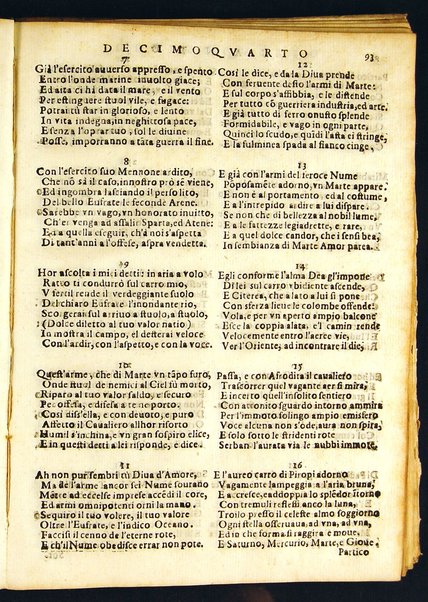 DECIMOQVARTO
93
7
Già l'esercito auuerso appresso, e spento
Entro l'onde marine inuolto giace;
Ed aita ci hà dato il mare, e il vento
Per estinguere stuol vile, e fugace:
Potrai tù star in glorioso, e lento
In vita indegna, in neghitosa pace,
E senza l'oprar tuo, sol le diuine
Posse, imporranno à tàta guerra il fine.
8
Con l'esercito suo Mennone ardito,
Che nô sà il caso, innostro prò sè viene,
Ed ingombra lasciando il perso lito,
Del bello Eufrate le feconde Arene.
Sarebbe vn vago, vn honorato inuitto,
Ch'ei venga ad assalir Sparta, ed Atene:
Ed a quella eseguir, ch'à noi s'aspetta
Di tant'anni l'offese, aspra vendetta.
9
Hor ascolta i miei detti: in aria a volo
Ratto ti condurrò sul carro mio,
V fertil rende il verdeggiante suolo
Del chiaro Eufrate l'inondante rio,
Scogerai sul arriuo a stuolo, a stuolo,
(Dolce diletto al tuo valor natio)
In mostra il campo, el desterai veloce
Con l'ardir, con l'aspetto, e con la voce.
10
Quest'arme, che di Marte vn tâpo furo,
Onde stuol de nemici al Ciel fù morto,
Riparo al tuo valor saldo, e securo
Per offesa, e difesa a te ne porto.
Così diss'ella, e con deuoto, e puro
Affetto il Caualiero allhor risorto
Humil s'inchina, e vn gran sospiro elice,
E in questi detti a lei risponde, e dice.
11
Ah non pur sembri tù Diua d'Amore,
Ma de l'arme ancor sei Nume sourano
Mêtre ad eccelse imprese accêdi il core,
Ed armi omnipotenti orni la mano.
Sequiro il tuo volere, il tuo valore
Oltre l'Eufrate, e l'indico Oceano.
Faccisi il cenno de l'eterne rote,
E ch'il Nume obedisce errar non pote.
12
Così le dice, e da la Diua prende
Con feruente desio l'armi di Marte:
E sul corpo s'affibbia, e le distende
Per tutto cô guerriera industria, ed arte.
E già tutto di ferro onusto splende
Formidabile, e vago in ogni parte,
Quinci lo scudo, e quîdi l'asta ei stringe,
E la fulminea spada al fianco cinge,
13
E già con l'armi del feroce Nume
Pôposamête adorno, vn Marte appare.
E non è al portamento, ed al costume,
E a l'intrepido ardire a lui dispare.
Se non che di bellezza al nobil lume,
E a le fattezze legiadrette, e rare,
E a quel dolce candor, che i sensi bea,
In sembianza di Marte Amor parea.
14
Egli conforme l'alma Dea gl'impone
Di lei sul carro vbidiente ascende,
E Citerea, che a lato a lui si pone
Con sferza lieue le colombe offende:
Vola, e per vn aperto ampio balcone
Esce la coppia alata, e'l camin rende
Velocemente entro l'aeree vie,
Ver l'Oriente, ad incontrare il die;
15
Passa, e con Afrodita il caualiero
Trascorrer quel vagante aer si mira,
E incerto quell'insolito sentiero
Con attonito sguardo intorno ammira
Per l'immoto silingo ampio emispero
Voce alcuna non s'ode, aura non spira,
E solo sotto le stridenti rote
Serban l'aurata vìa le nubbi immote,
16
E l'aureo carro di Piropi adorno
Vagamente lampeggia a l'aria bruna,
E accresce, e addoppia lo splèdor storno
Con tremoli reflessi anco la luna,
Troilo presso il celeste almo soggiorno
Ogni stella osseruaua, ad vna, ad vna,
Ed in che forma si raggira e moue,
E Saturno, Mercurio, Marte e Gioue,
Partico